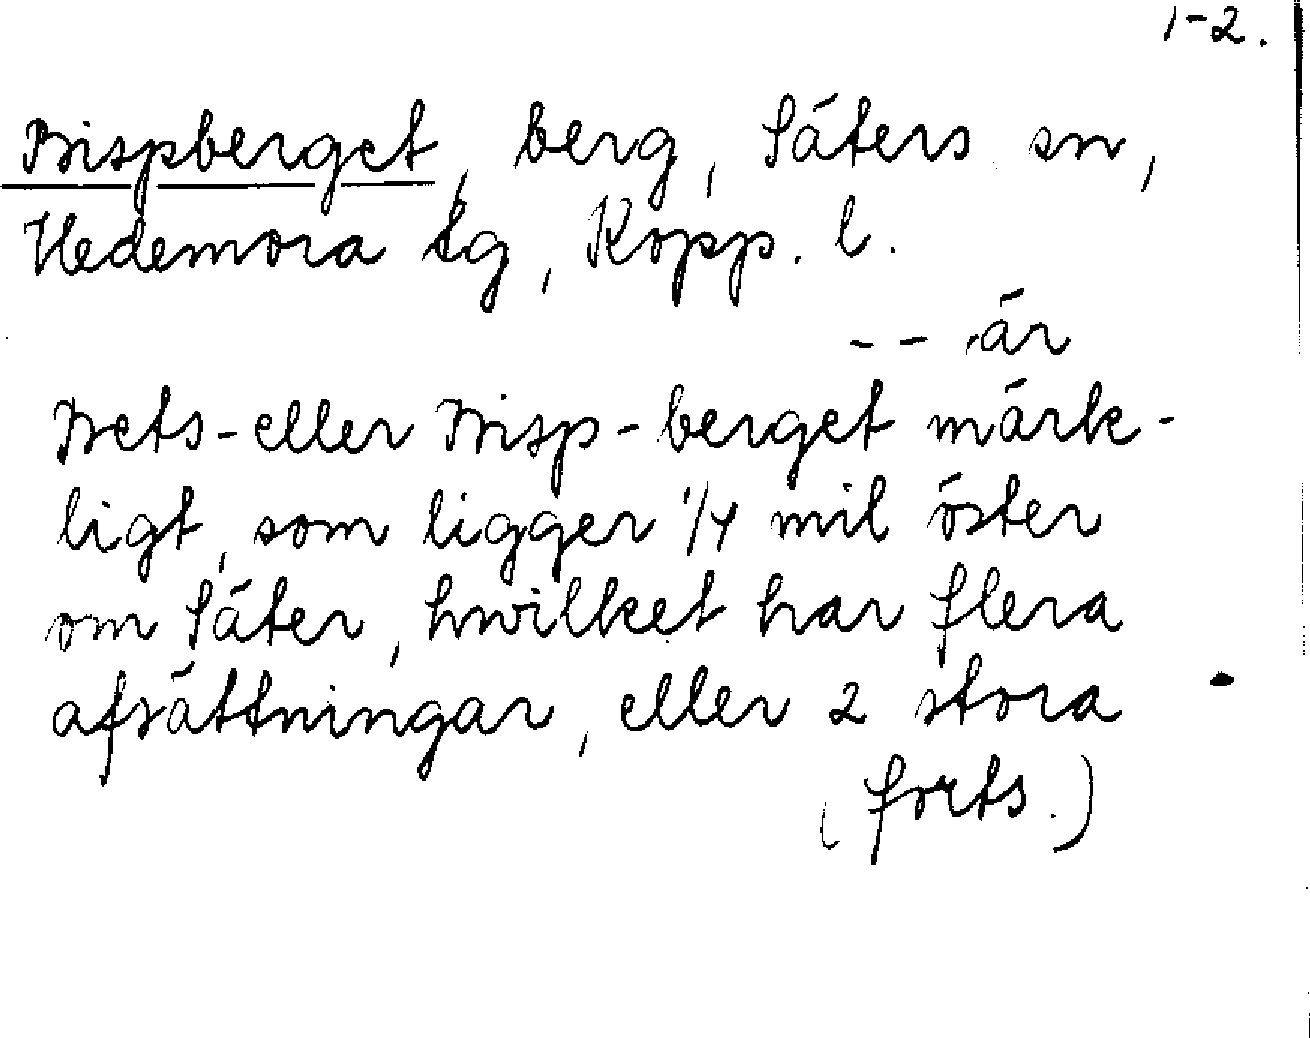 1-2.
Bispberget, berg, Säters sn,
Hedemora tg, Kopp. l.
-- är
Bets- eller Bisp-berget märk-
ligt, som ligger 1/4 mil öster
om Säter, hwilket har flera
afsättningar, eller 2 stora
(forts.)